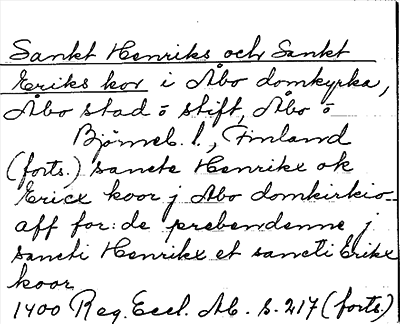 Sankt Henriks och Sankt
Eriks kor i Åbo domkyrka,
Åbo stad o stift, Åbo o
Björneb. l., Finland
(forts.) sancte Henrikx ok
Ericx koor j Abo domkirkio-
aff for: de prebendenne j
sancti Henrikx et sancti Erikx
koor
1400 Reg. Eccl. Ab. s. 217 (forts.)